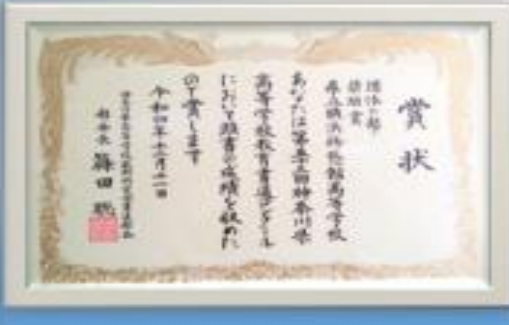 賞状
団体の部
奨励賞
県立横浜修悠館高等学校
あなたは第二十五回神奈川県
高等学校教育書道コンクール
において頭書の成績を収めた
ので賞します
令和四年十二月十一日
部会長